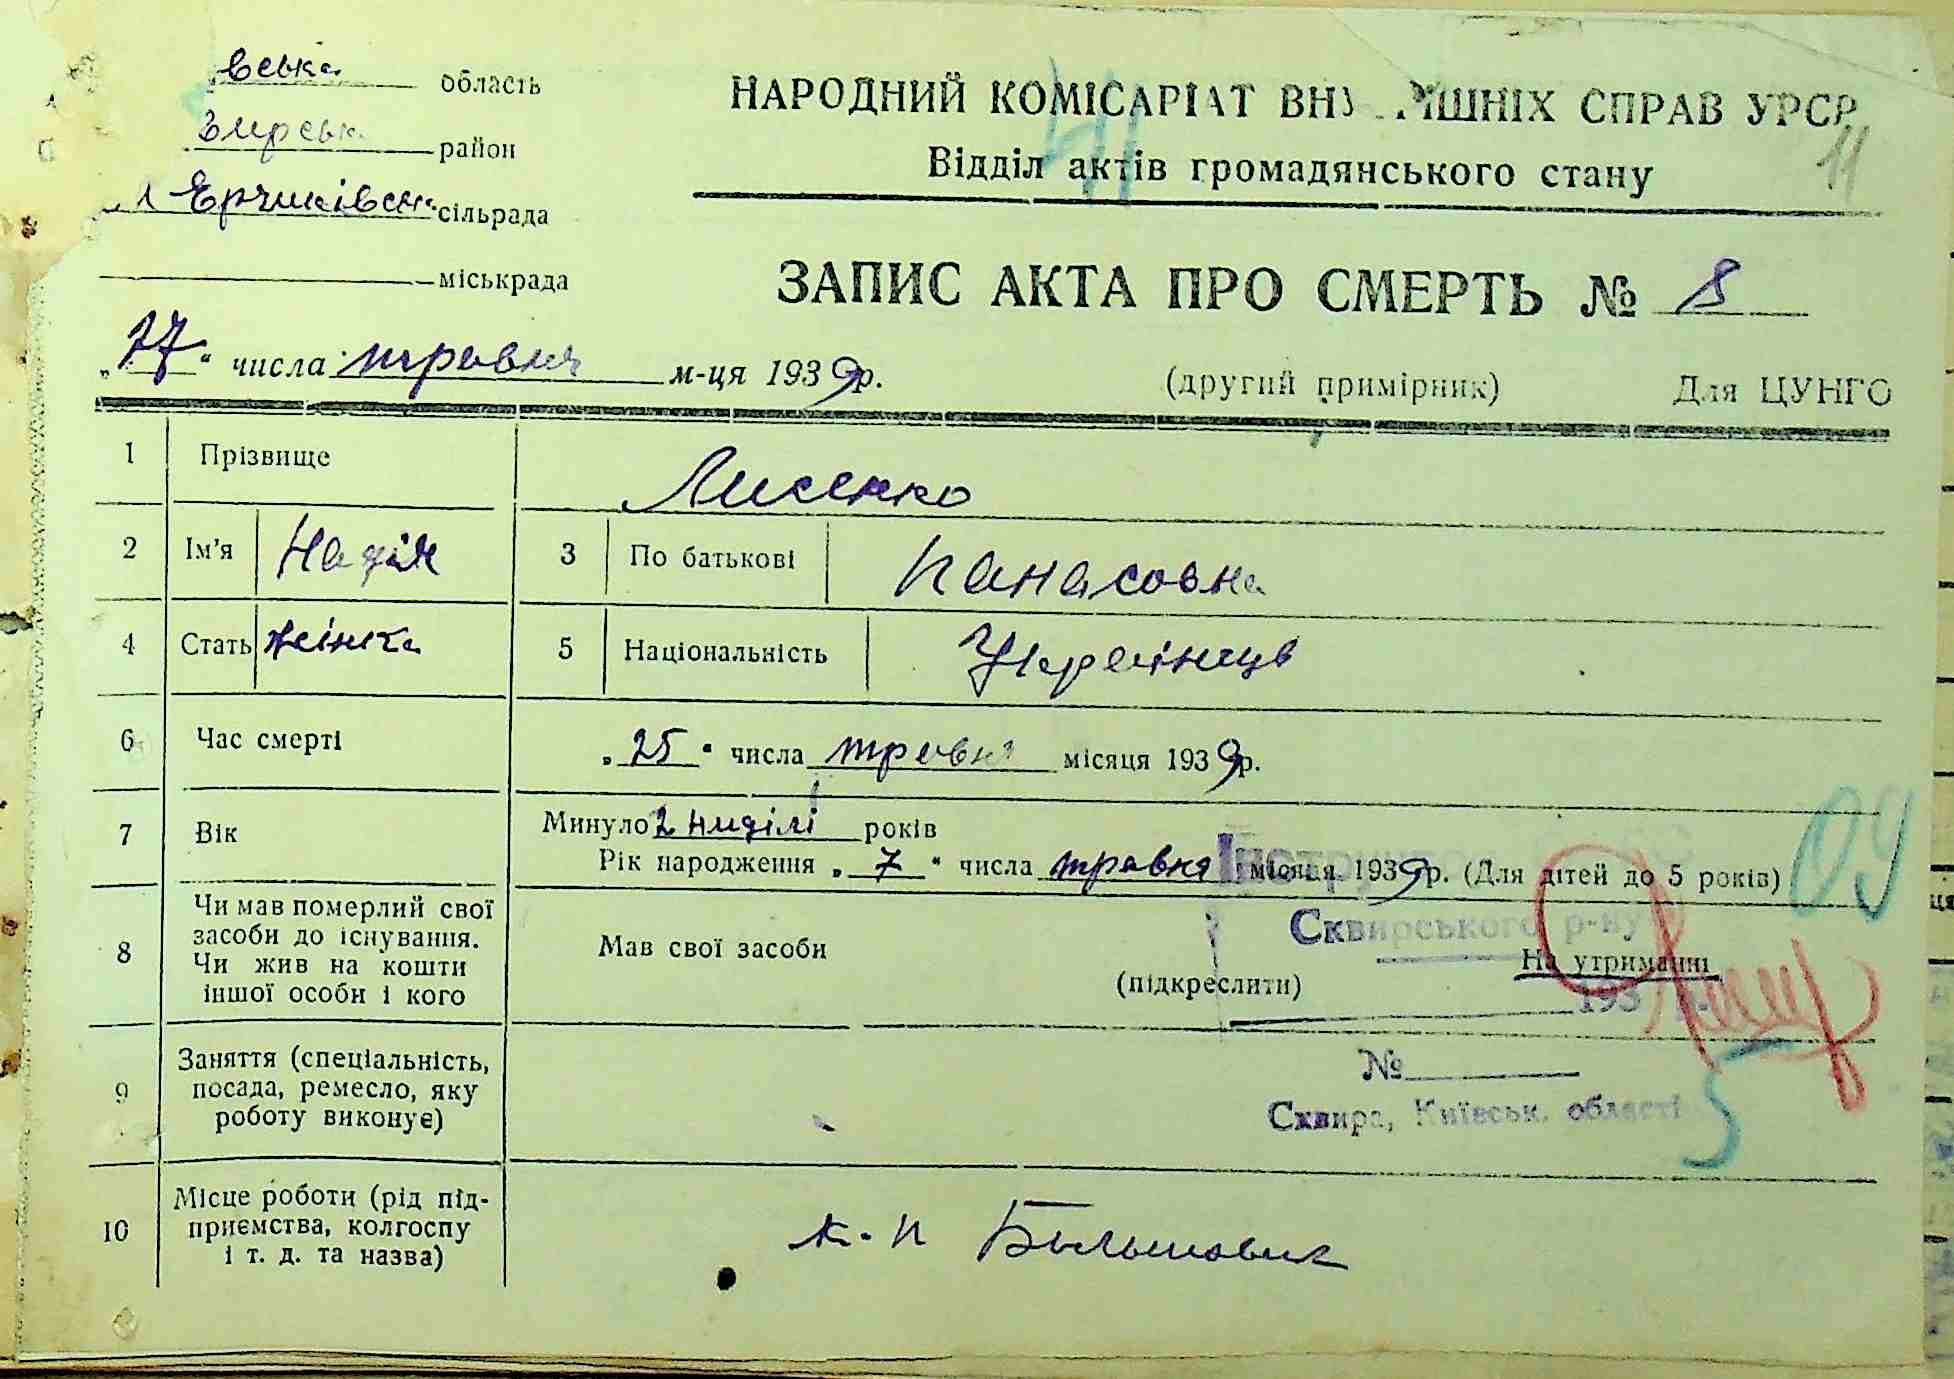 вська область
вирськ район
Л Ерчиківськ сільрада
міськрада
НАРОДНИЙ КОМІСАРІАТ ВНУ ІШНІХ СПРАВ УРСР
11
Відділ актів громадянського стану
ЗАПИС АКТА ПРО СМЕРТЬ № 8
„27“ числа травня м-ця 1939р.
(другий примірник) Для ЦУНГО
1 Прізвище Лисенко
2 Ім'я Надія 3 По батькові Панасовна
4 Стать жінка 5 Національність Українців
6 Час смерті „25“ числа травня місяця 1939р.
7 Вік Минуло 2 ниділі років
Рік народження „7“ числа травня місяця 1939р. (Для дітей до 5 років)
09
8 Чи мав померлий свої засоби до існування. Чи жив на кошти іншої особи і кого
Мав свої засоби (підкреслити) На утриманні
Сквирського р-ну
193
9 Заняття (спеціальність, посада, ремесло, яку роботу виконує)
№
Сквира, Київськ. області
5
10 Місце роботи (рід підприємства, колгоспу і т. д. та назва)
к-п Большовик